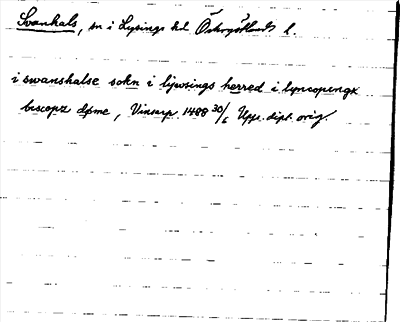 Svanhals, sn i Lysings hd Östergötlands l.
i swanshalse sokn i lijwsings herred i lyncopungx
biscopz døme, Vinnerp. 1488 30/6 Upps. dipl. orig.